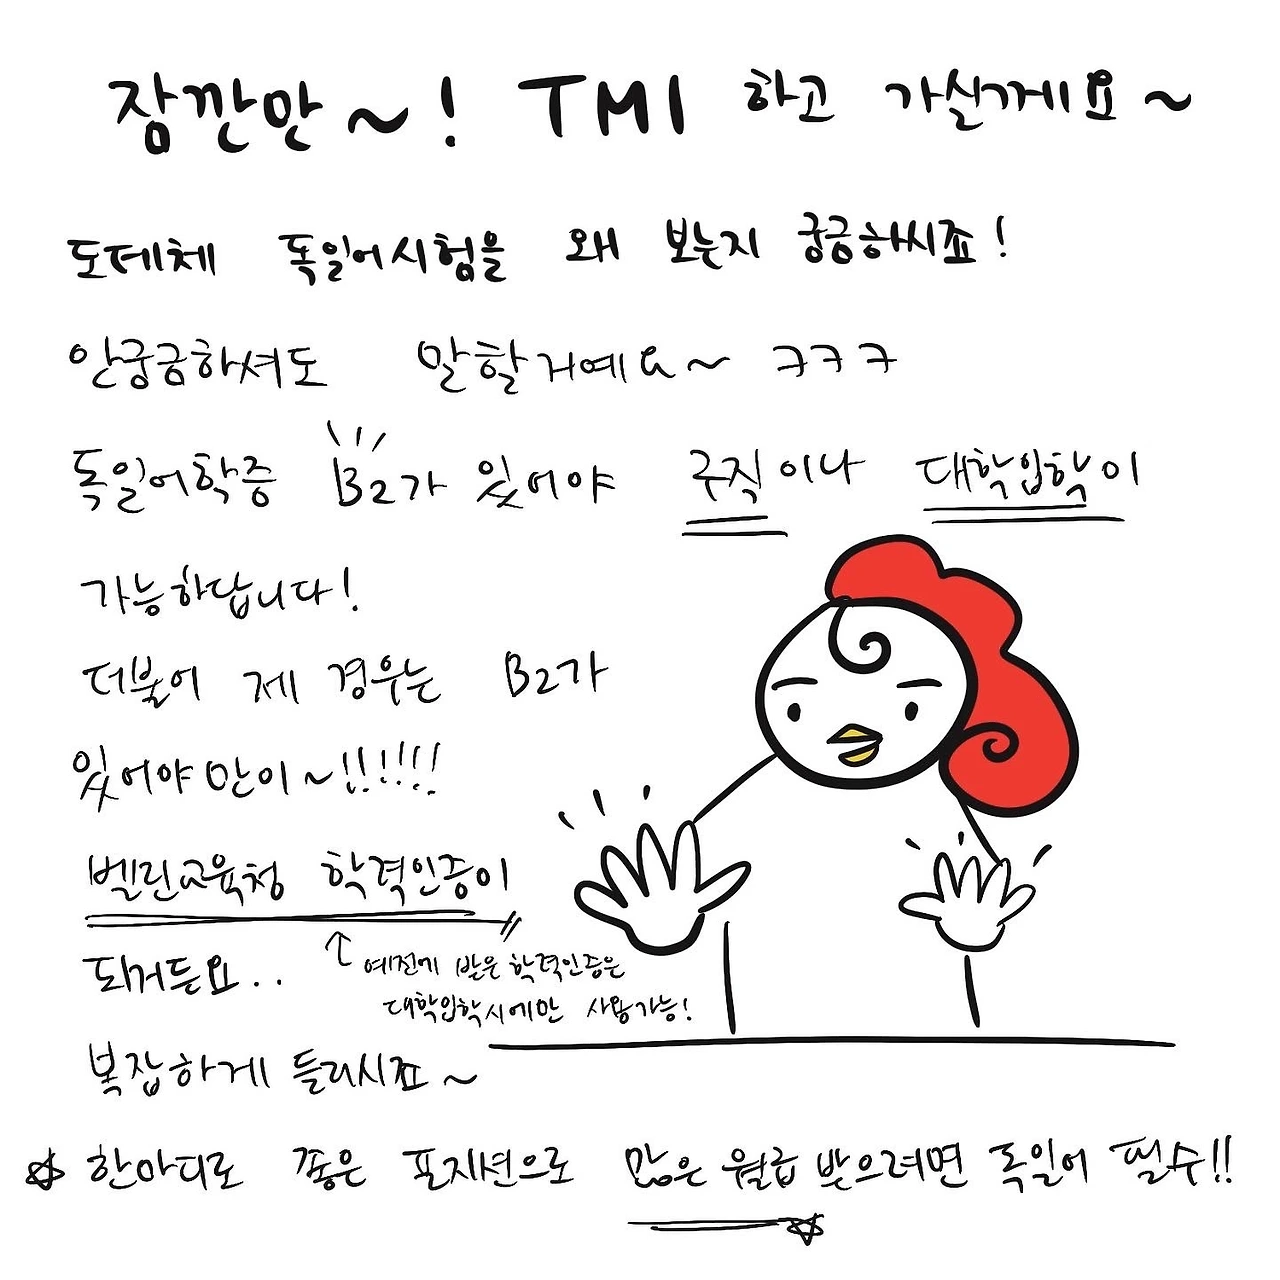 잠깐만~! TMI 하고 가실게요~
도데체 독일어시험을 왜 보는지 궁금하시죠!
안궁금하셔도 말할거예요~ ㅋㅋㅋ
독일어학증 B2가 있어야 구직이나 대학입학이
가능하답니다!
더불어 제 경우는 B2가
있어야만이~!!!!!!
벨린교육청 학력인증이
되거든요..
↑ 예전에 받은 학력인증은
대학입학시에만 사용가능!
복잡하게 들리시죠~
☆ 한마디로 좋은 포지션으로 많은 월급 받으려면 독일어 필수!!